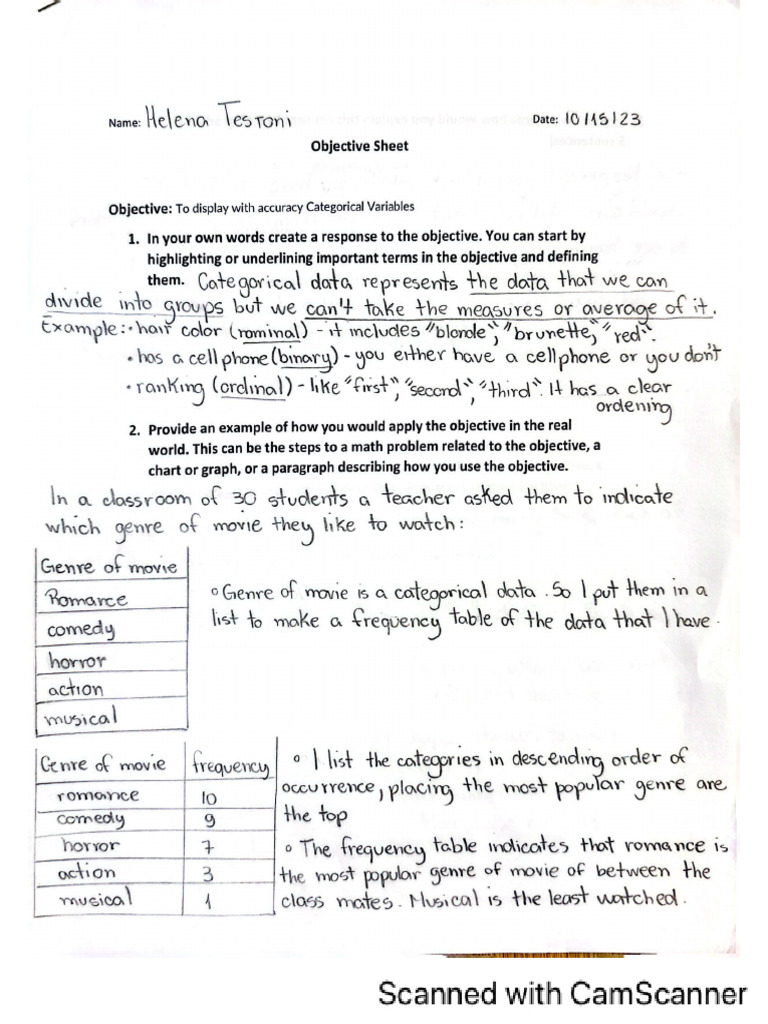 Name: Helena Testoni Date: 10/15/23
Objective Sheet
Objective: To display with accuracy Categorical Variables
1. In your own words create a response to the objective. You can start by
highlighting or underlining important terms in the objective and defining
them. Categorical data represents the data that we can
divide into groups but we can't take the measures or average of it.
Example: • hair color (nominal) - it includes "blonde", "brunette," "red".
• has a cell phone (binary) - you either have a cellphone or you don't
• ranking (ordinal) - like "first", "second", "third". It has a clear
ordening
2. Provide an example of how you would apply the objective in the real
world. This can be the steps to a math problem related to the objective, a
chart or graph, or a paragraph describing how you use the objective.
In a classroom of 30 students a teacher asked them to indicate
which genre of movie they like to watch:
Genre of movie
Romance
comedy
horror
action
musical
° Genre of movie is a categorical data. So I put them in a
list to make a frequency table of the data that I have.
Genre of movie frequency
romance 10
comedy 9
horror 7
action 3
musical 1
° I list the categories in descending order of
occurrence, placing the most popular genre are
the top
° The frequency table indicates that romance is
the most popular genre of movie of between the
class mates. Musical is the least watched.
Scanned with CamScanner